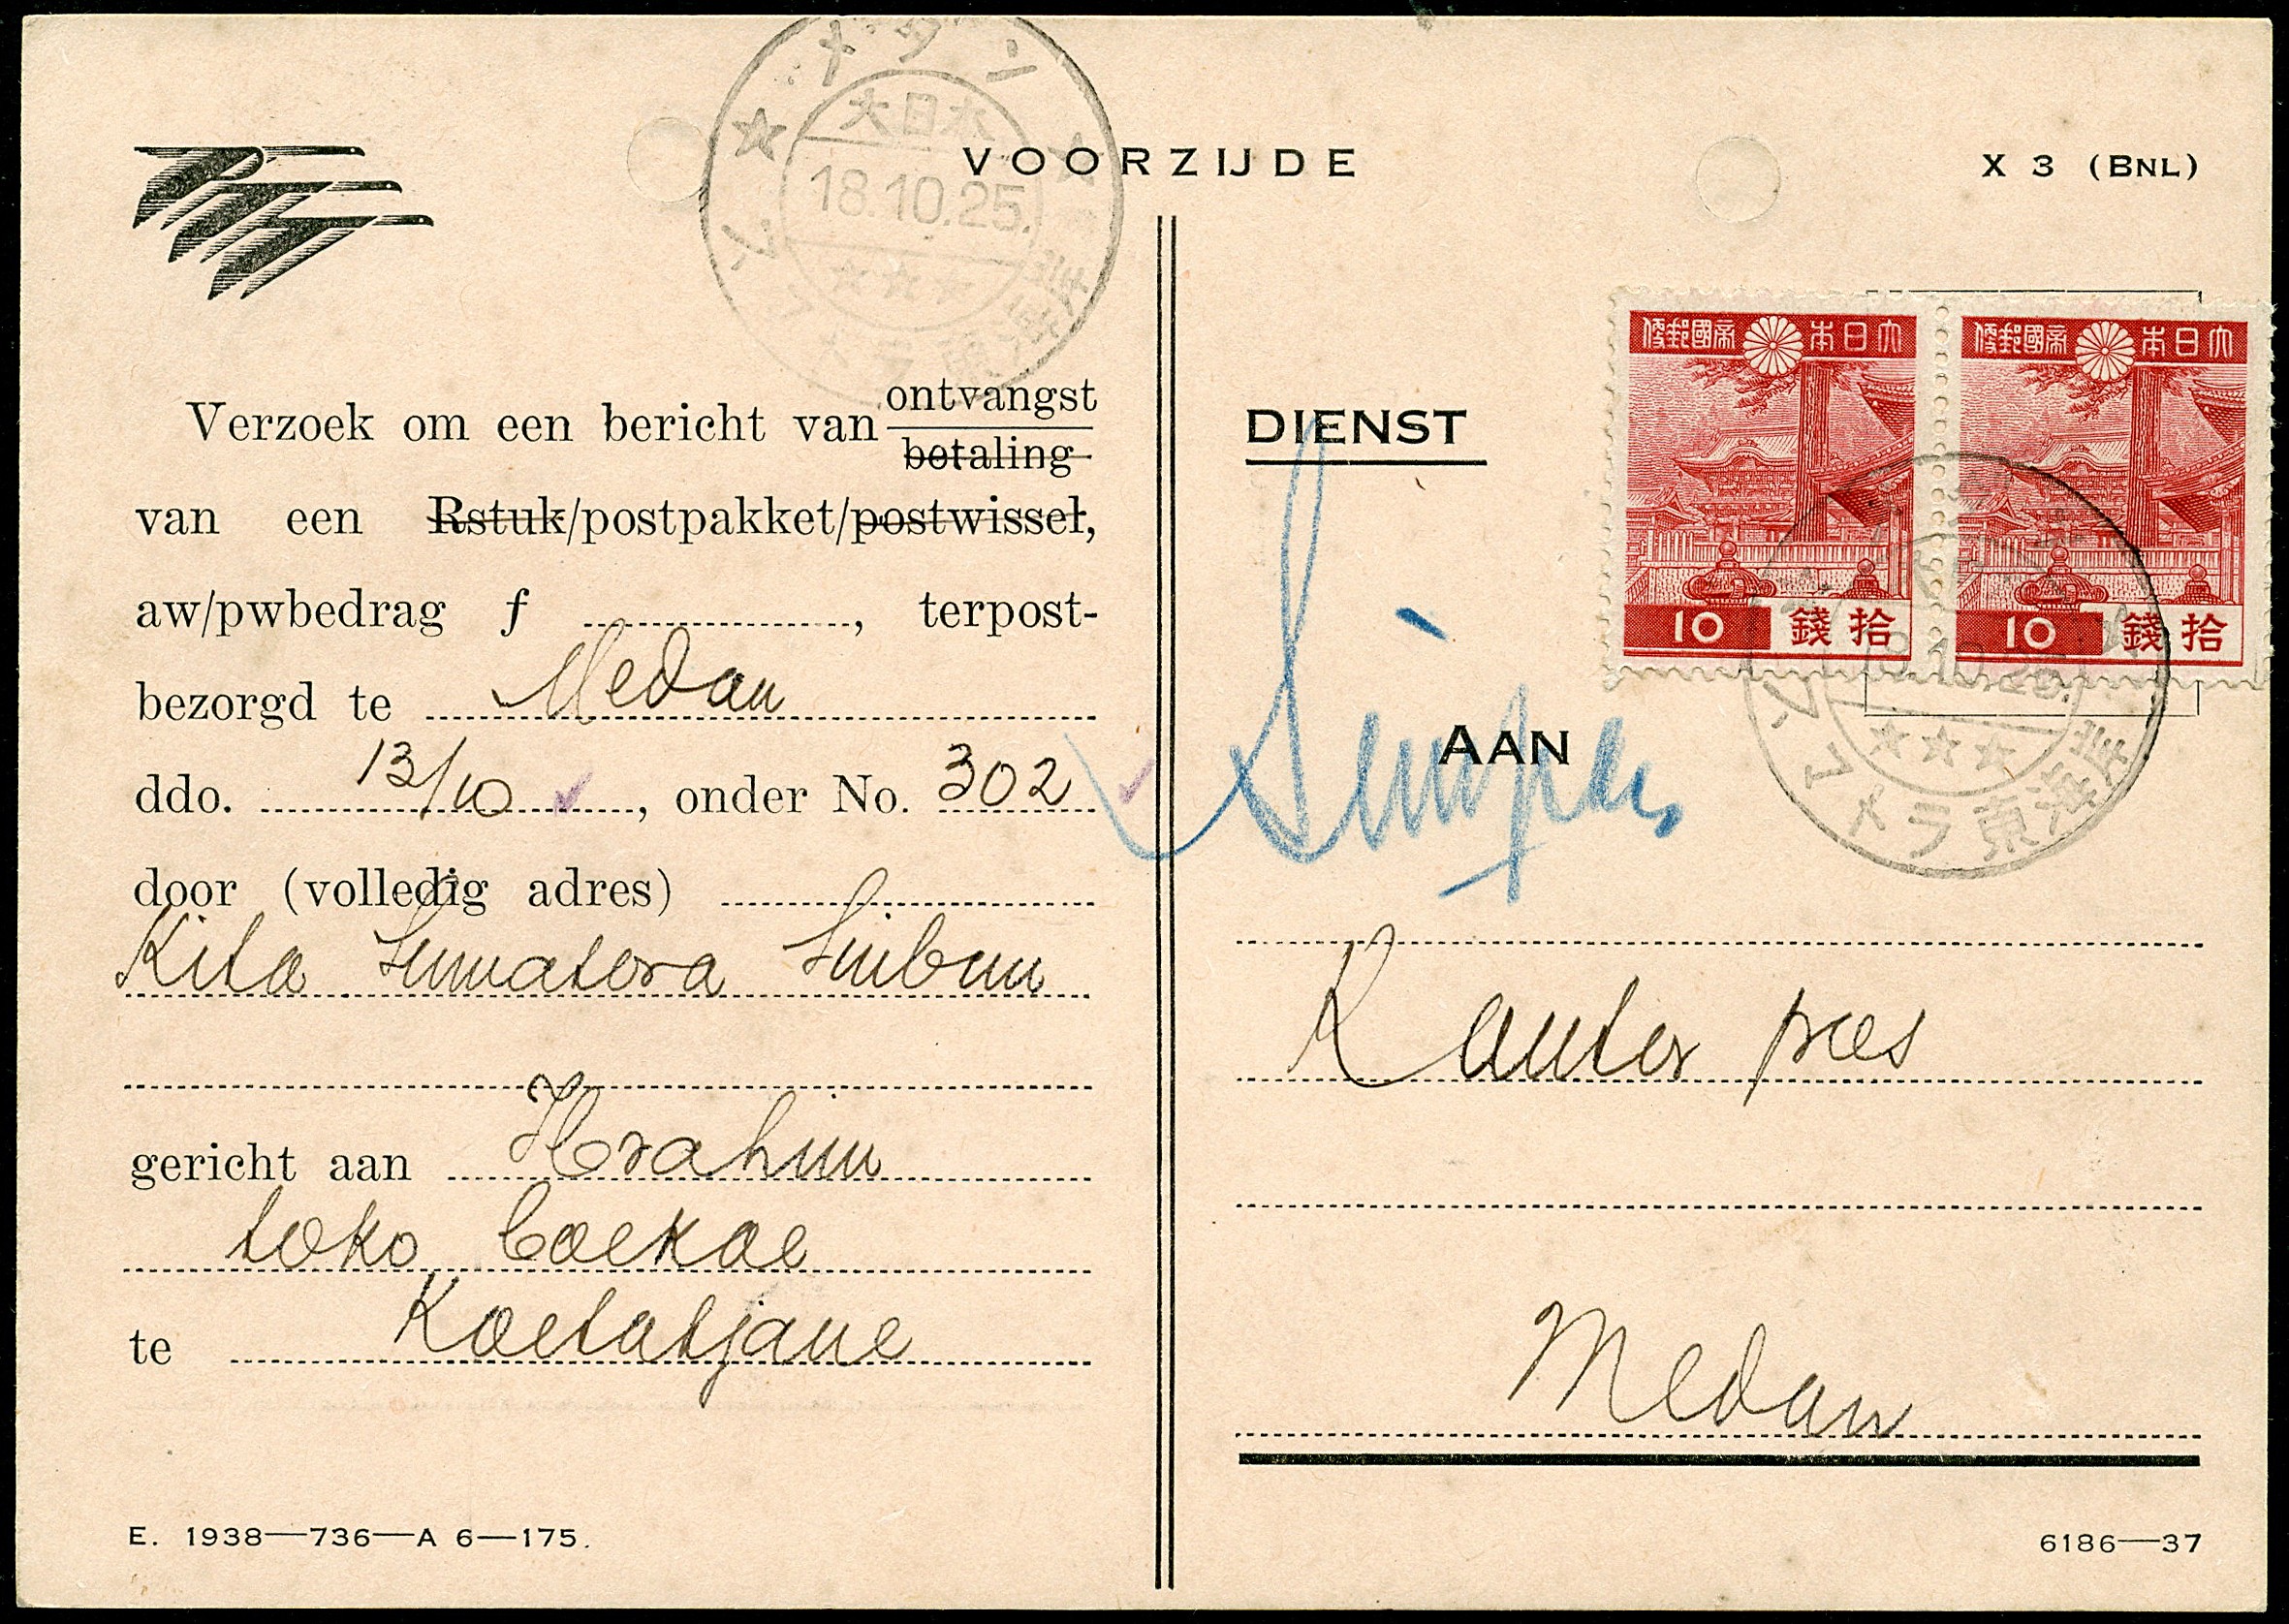 メダン
大日本
18.10.25.
スマトラ東海岸
PTT
VOORZIJDE
X 3 (BNL)
Verzoek om een bericht van ontvangst
betaling
van een Rstuk/postpakket/postwissel,
aw/pwbedrag f ..., terpost-
bezorgd te Medan
ddo. 13/10, onder No. 302
door (volledig adres)
Kita Sumatora Sinbun
gericht aan Ibrahim
toko Coekoe
te Koetatjane
E. 1938—736—A 6—175.
DIENST
大日本帝國郵便
10 拾錢
大日本帝國郵便
10 拾錢
スマトラ東海岸
AAN
Kanter pos
Medan
6186—37